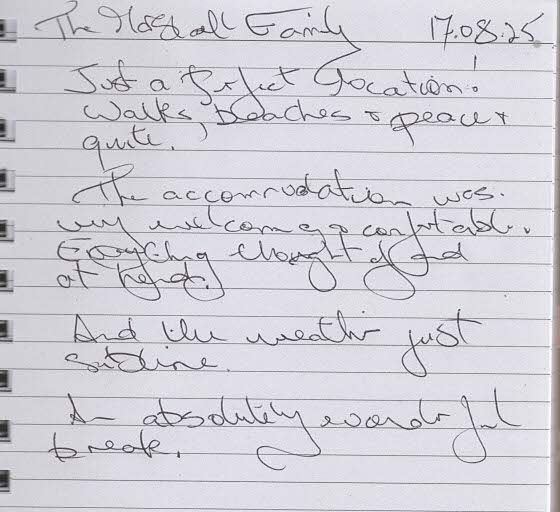 The Marshall Family 17.08.25
Just a perfect location!
Walks, beaches + peace +
quite.
The accommodation was.
very welcoming & comfortable.
Everything thought of and
at hand.
And the weather just
sublime.
An absolutely wonderful
break.